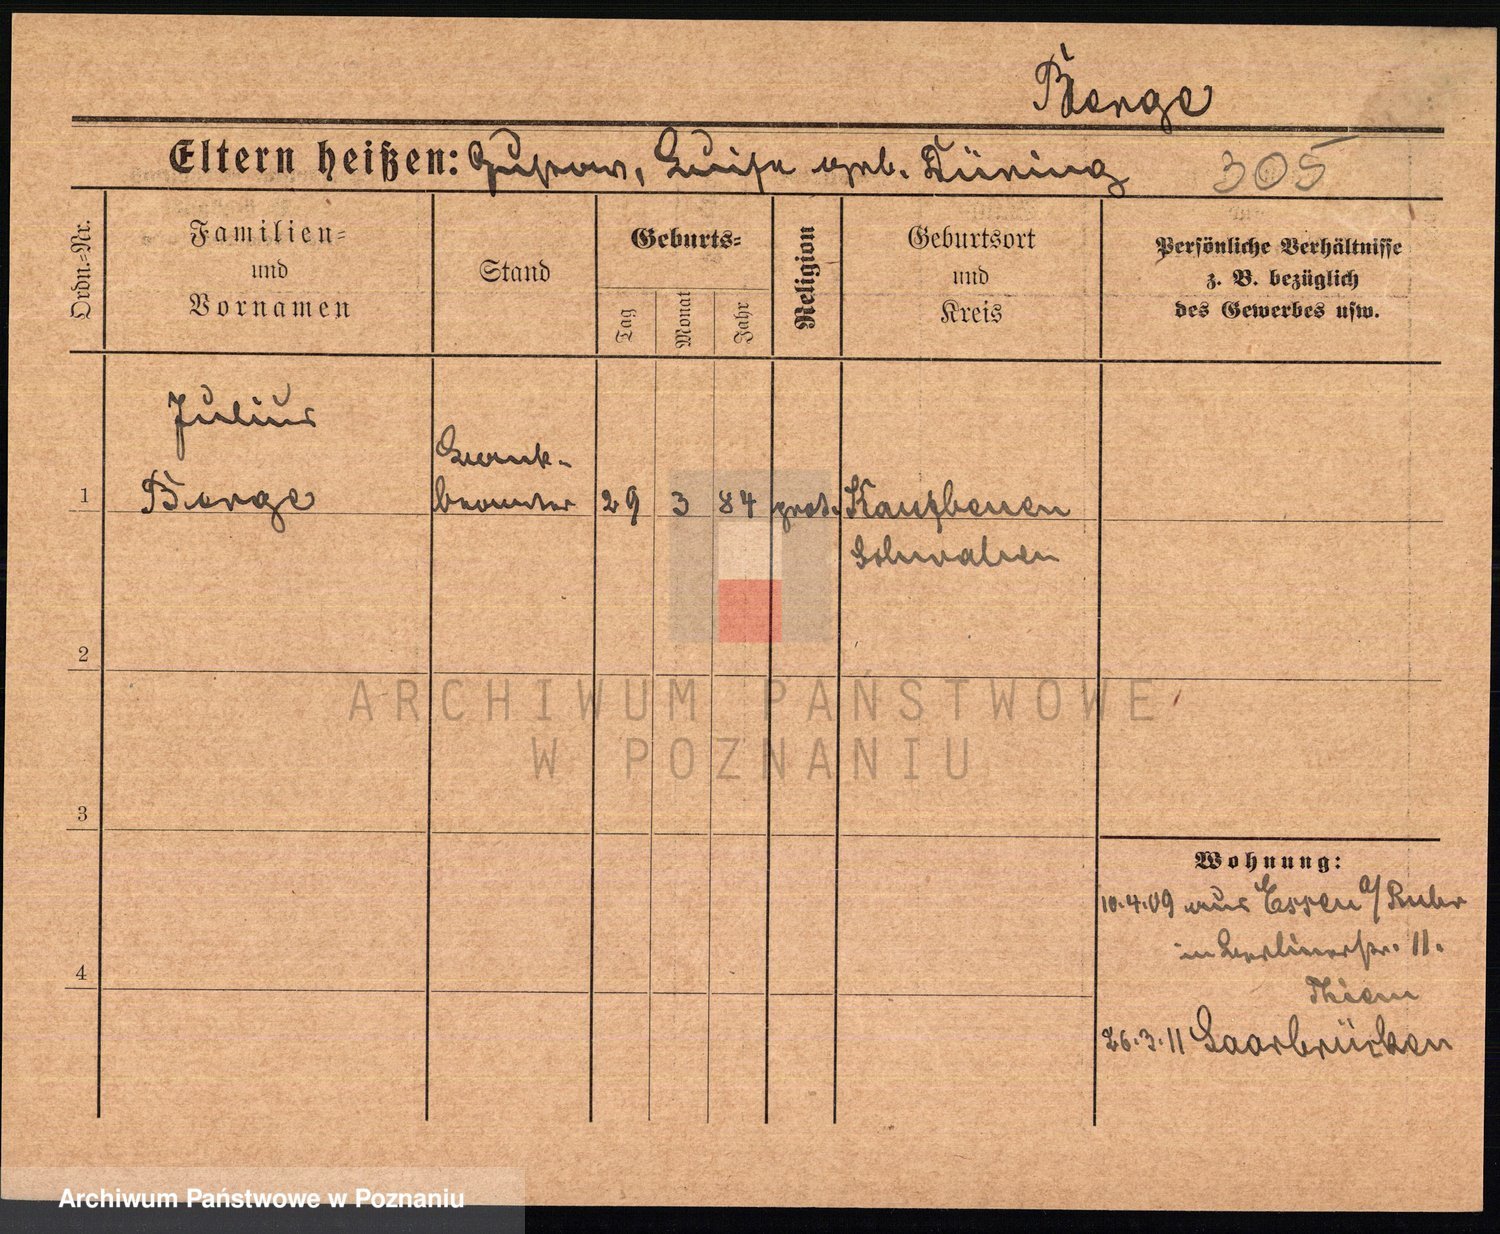 Berge
Eltern heißen: Gustav, Luise geb. Düring 305
Ordn.-Nr.
Familien-
und
Vornamen
Stand
Geburts-
Tag
Monat
Jahr
Religion
Geburtsort
und
Kreis
Persönliche Verhältnisse
z. B. bezüglich
des Gewerbes usw.
Julius
Bank-
1 Berge beamter 29 3 84 prot. Kaufbeuren
Schwaben
2
ARCHIWUM PAŃSTWOWE
W POZNANIU
3
Wohnung:
10.4.09 aus Essen a/Ruhr
in Berlinerstr. 11.
4
Thiem
26.3.11 Saarbrücken
Archiwum Państwowe w Poznaniu